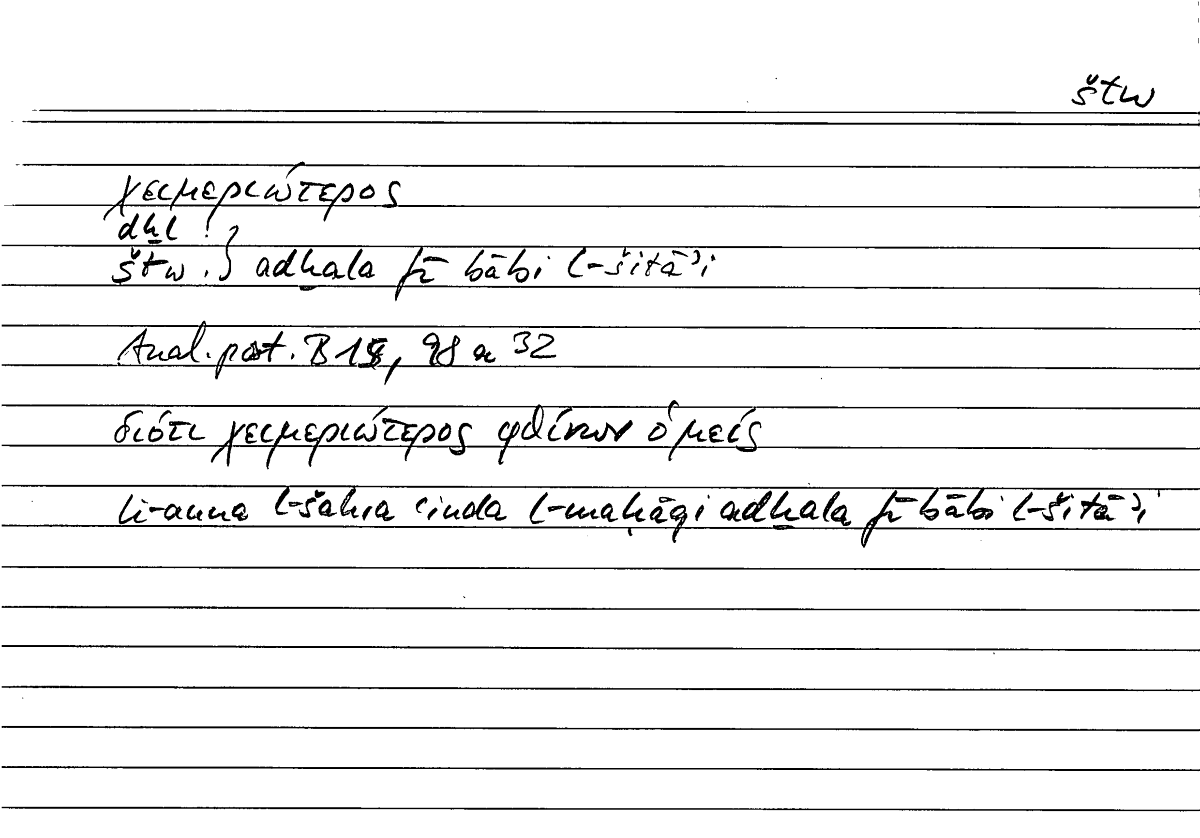 štw
χειμεριώτερος
dḫl
štw } adḫala fī bābi l-šitāʾi
Anal. post. B 15, 98 a 32
διότι χειμεριώτερος φθίνων ὁ μείς
li-anna l-šahra ʿinda l-maḥāqi adḫala fī bābi l-šitāʾi